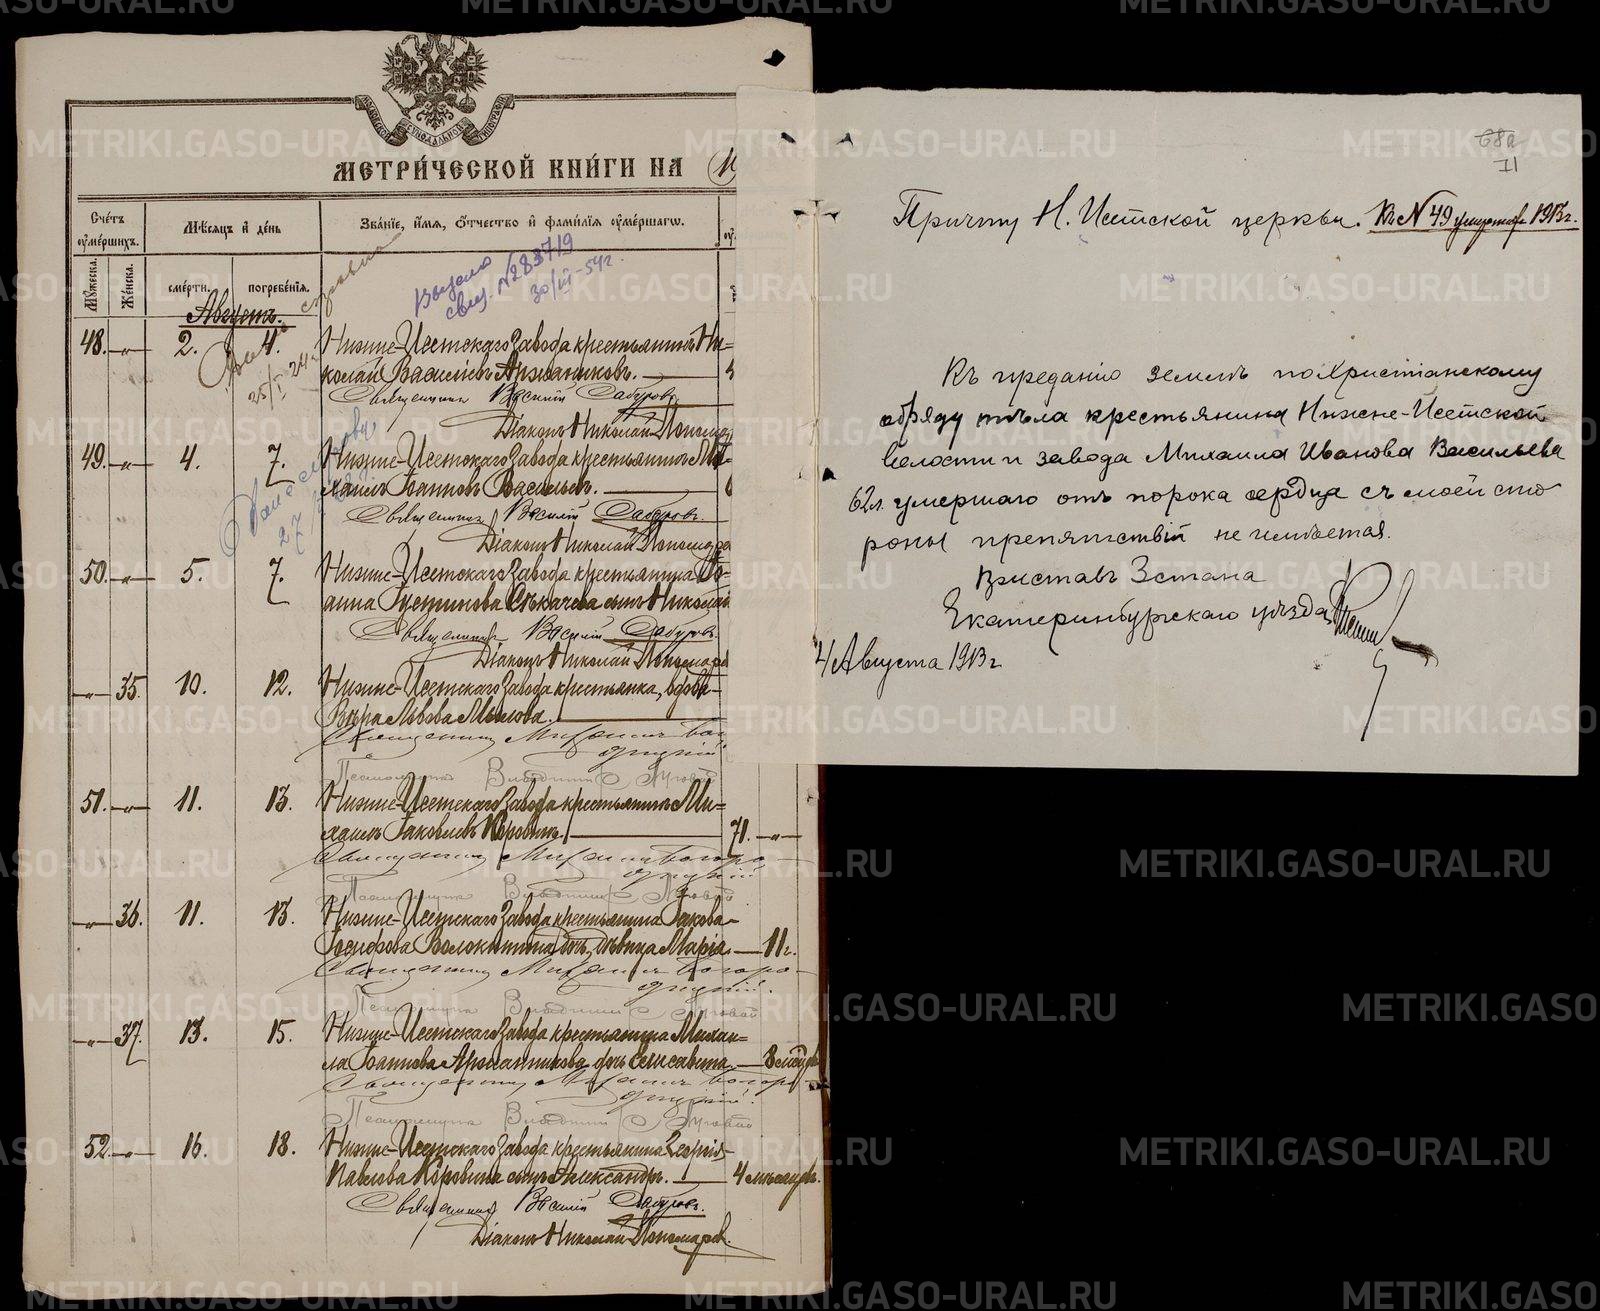 МЕТРИ́ЧЕСКОЙ КНИ́ГИ НА
Сче́тъ
ᲂу҆ме́ршихъ.
Мꙋ́жеска.
Же́нска.
Мѣ́сяцъ и҆ де́нь
сме́рти.
погребе́нїѧ.
Зва́нїе, и҆́мѧ, ѻ҆́тчество и҆ фами́лїѧ ᲂу҆ме́ршагѡ.
Выдано
свид. №283719
30/III-54г.
Августъ.
48. -„- 2. 4. Нижне-Исетскаго завода крестьянинъ Ни-
колай Васильевъ Аржанниковъ.
Священникъ Василій Сабуровъ.
Діаконъ Николай Пономар
25/I 24г
49. -„- 4. 7. Нижне-Исетскаго завода крестьянинъ Ми-
хаилъ Іоанновъ Васильевъ.
Священникъ Василій Сабуровъ.
Діаконъ Николай Пономаре
50. -„- 5. 7. Нижне-Исетскаго завода крестьянина Іо-
анна Устинова Секачева сынъ Николай
Священникъ Василій Сабуровъ.
Діаконъ Николай Пономаре
-„- 35. 10. 12. Нижне-Исетскаго завода крестьянка, вдова
Вѣра Львова Мылова.
Священникъ Михаилъ Бого
родицкій
Псаломщикъ Владимиръ Луговой
51. -„- 11. 13. Нижне-Исетскаго завода крестьянинъ Ми-
хаилъ Іаковлевъ Коровинъ. 71. -„-
Священникъ Михаилъ Богоро-
дицкій
Псаломщикъ Владимиръ Луговой
-„- 36. 11. 13. Нижне-Исетскаго завода крестьянина Іакова
Іосифова Волокитина дочь, дѣвица Марія. 11г.
Священникъ Михаилъ Богоро-
дицкій.
Псаломщикъ Владимиръ Луговой
-„- 37. 13. 15. Нижне-Исетскаго завода крестьянина Михаи-
ла Іоаннова Аржанникова дочь Елисавета. 8 мѣсяц
Священникъ Михаилъ Богоро-
дицкій.
Псаломщикъ Владимиръ Луговой
52. -„- 16. 18. Нижне-Исетскаго завода крестьянина Георгія
Павлова Коровина сынъ Александръ. 4 мѣсяцевъ.
Священникъ Василій Сабуровъ.
Діаконъ Николай Пономаревъ.
68а
II
Причту Н. Исетской церкви. Къ N 49 умерш. 1913г.
Къ преданію землѣ по Христіанскому
обряду тѣла крестьянина Нижне-Исетской
волости и завода Михаила Иванова Васильева
62л. умершаго отъ порока сердца съ моей сто
роны препятствій не имѣется.
Приставъ 3 стана
Екатеринбургскаго уѣзда
4 Августа 1913г
METRIKI.GASO-URAL.RU